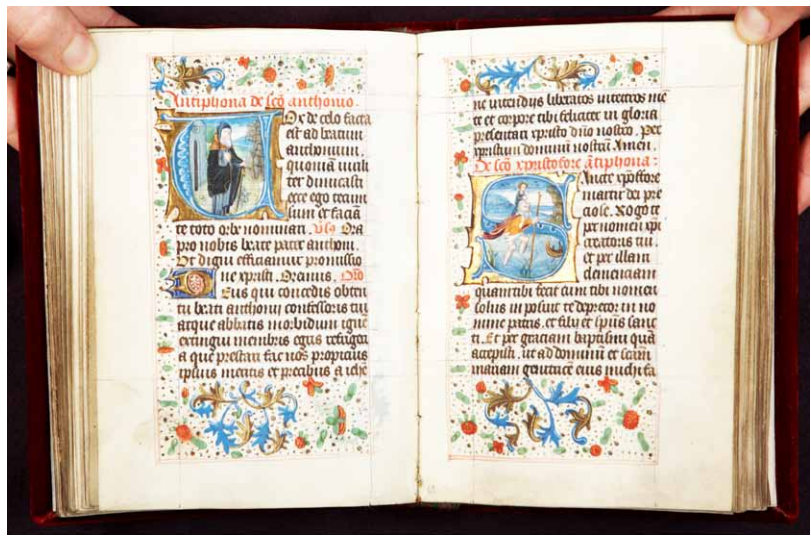 Antiphona de sc̄o anthonio.
Vox de celo facta
est ad beatum
anthonium.
quoniā virili
ter dimicasti
ecce ego tecum
sum et faciā
te toto orbe nominari. Ora
pro nobis beate pater anthoni.
Vt digni efficiamur promissio
ne xpristi. Oremus. Oro
Deus qui concedis obten
tu beati anthonij confessoris tui
atque abbatis morbidum ignē
extingui membris egris refrigeria
prestari fac nos propicius
ipsius meritis et precibus a
ne incendijs liberatos integros me
te et corpore tibi feliciter in gloria
presentari xpristo dn̄o nostro. Per
xpristum dominum nostrū Amen.
De sc̄o xpristofore ātiphona:
Sancte xp̄offore
martir dei pre
ciose. Rogo te
per nomen xp̄i
creatoris tui.
et per illam
clemenciam
quam tibi fecit cum tibi nomen
solus in posuit te deprecor in no
mine patris. et filij et sp̄us sanc
ti. Et per graciam baptismi quā
accepisti, ut ad dominū et sc̄am
mariam genitricē eius michi fa